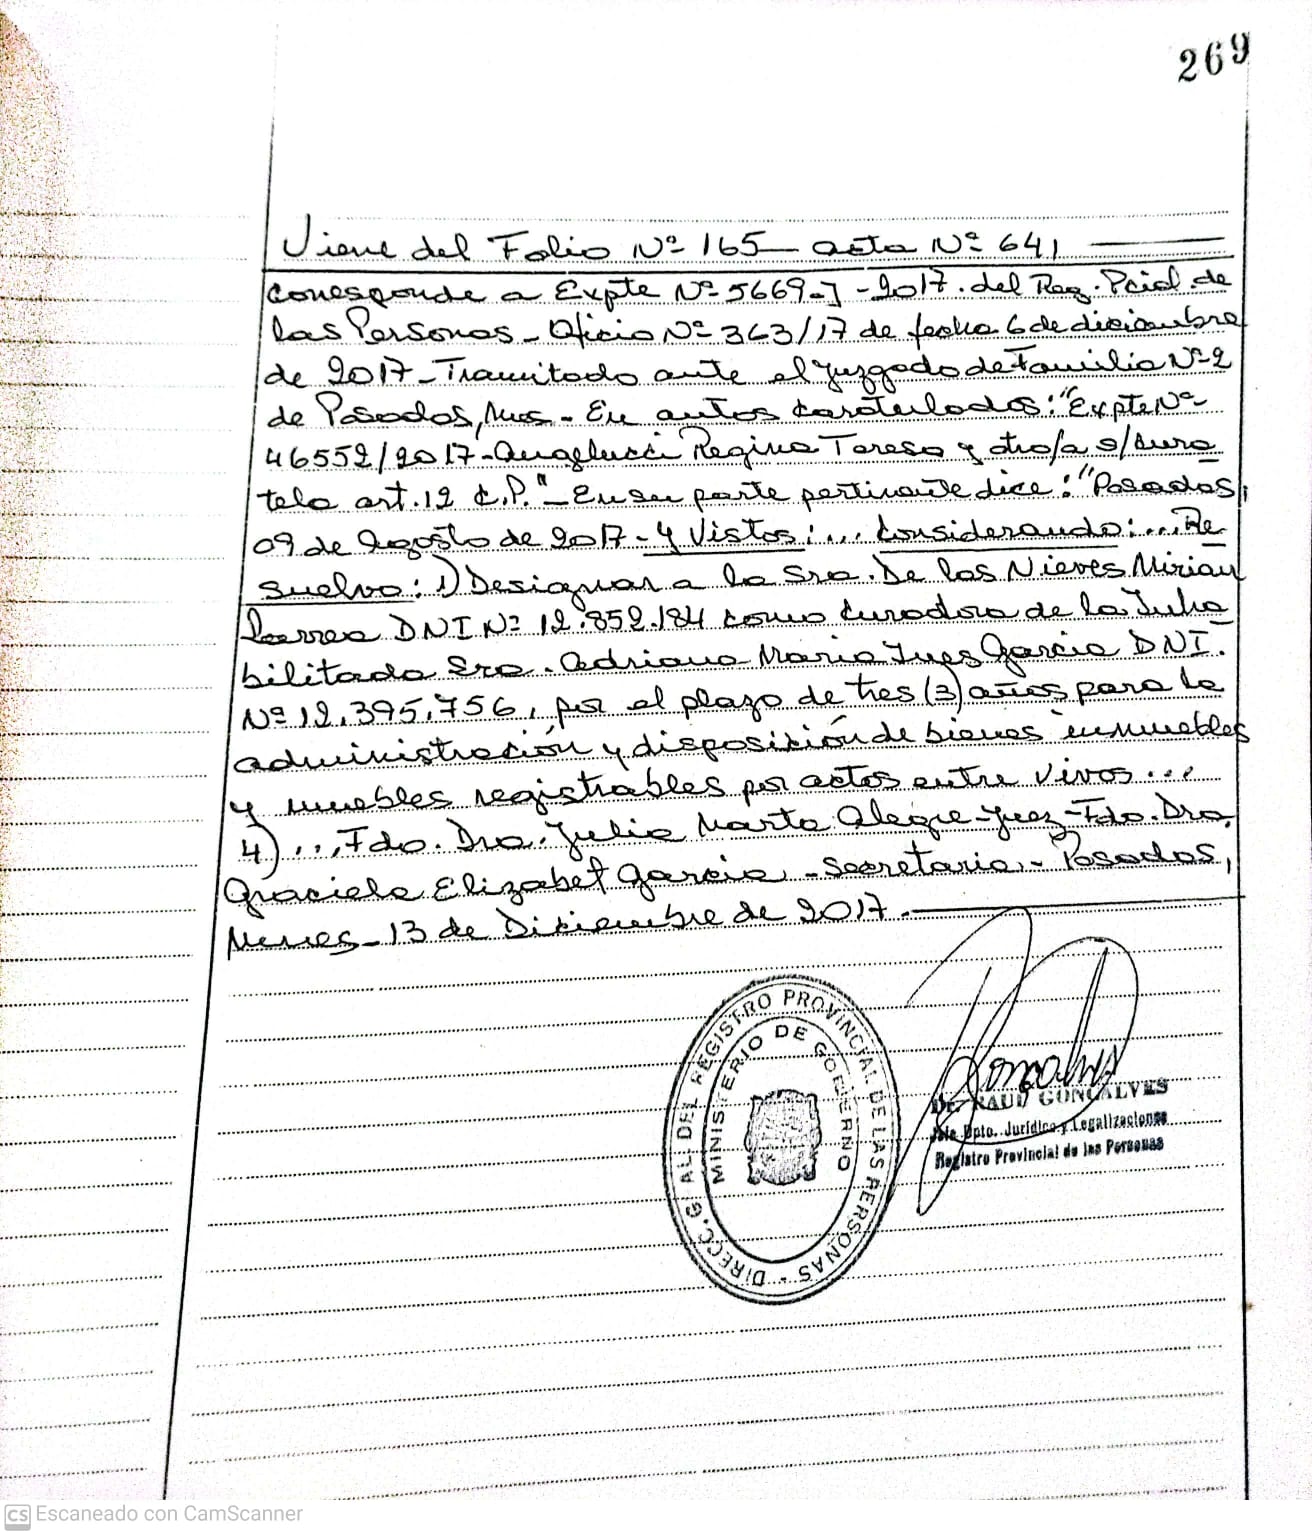 269
Viene del Folio Nº 165 - acta Nº 641
corresponde a Expte Nº 5669-J-2017. del Reg. Pcial de
las Personas - Oficio Nº 363/17 de fecha 6 de diciembre
de 2017 - Tramitado ante el juzgado de Familia Nº 2
de Posadas, Mnes - En autos caratulados: "Expte Nº
46552/2017 - Angelucci Regina Teresa y otro/a s/cura
tela art. 12 C.P." - En su parte pertinente dice: "Posadas,
09 de Agosto de 2017 - Y Vistos: ... Considerando: ... Re
suelvo: 1) Designar a la Sra. De las Nieves Mirian
Larrea DNI Nº 12.852.184 como curadora de la Inha
bilitada Sra. Adriana Maria Ines Garcia DNI.
Nº 12.395.756, por el plazo de tres (3) años para la
administración y disposición de bienes inmuebles
y muebles registrables por actos entre vivos ...
4) ... Fdo. Dra. Julia Marta Alegre - Juez - Fdo. Dra.
Graciela Elizabet Garcia - Secretaria - Posadas,
Mnes - 13 de Diciembre de 2017.
DIRECC. G AL DEL REGISTRO PROVINCIAL DE LAS PERSONAS -
MINISTERIO DE GOBIERNO
Dr. RAUL GONCALVES
Jefe Dpto. Jurídico y Legalizaciones
Registro Provincial de las Personas
CS Escaneado con CamScanner